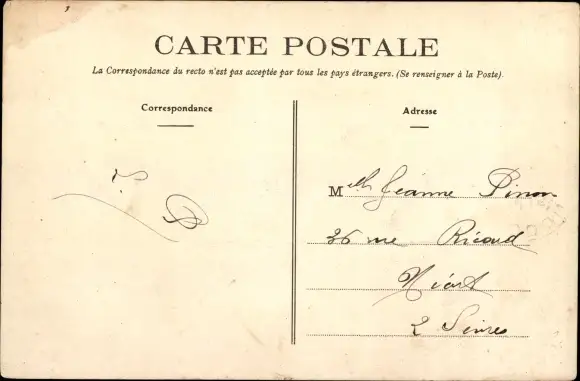 CARTE POSTALE
La Correspondance du recto n'est pas acceptée par tous les pays étrangers. (Se renseigner à la Poste).
Correspondance
Adresse
Melle Jeanne Pinon
36 rue Ricard
Niort
2 Sèvres